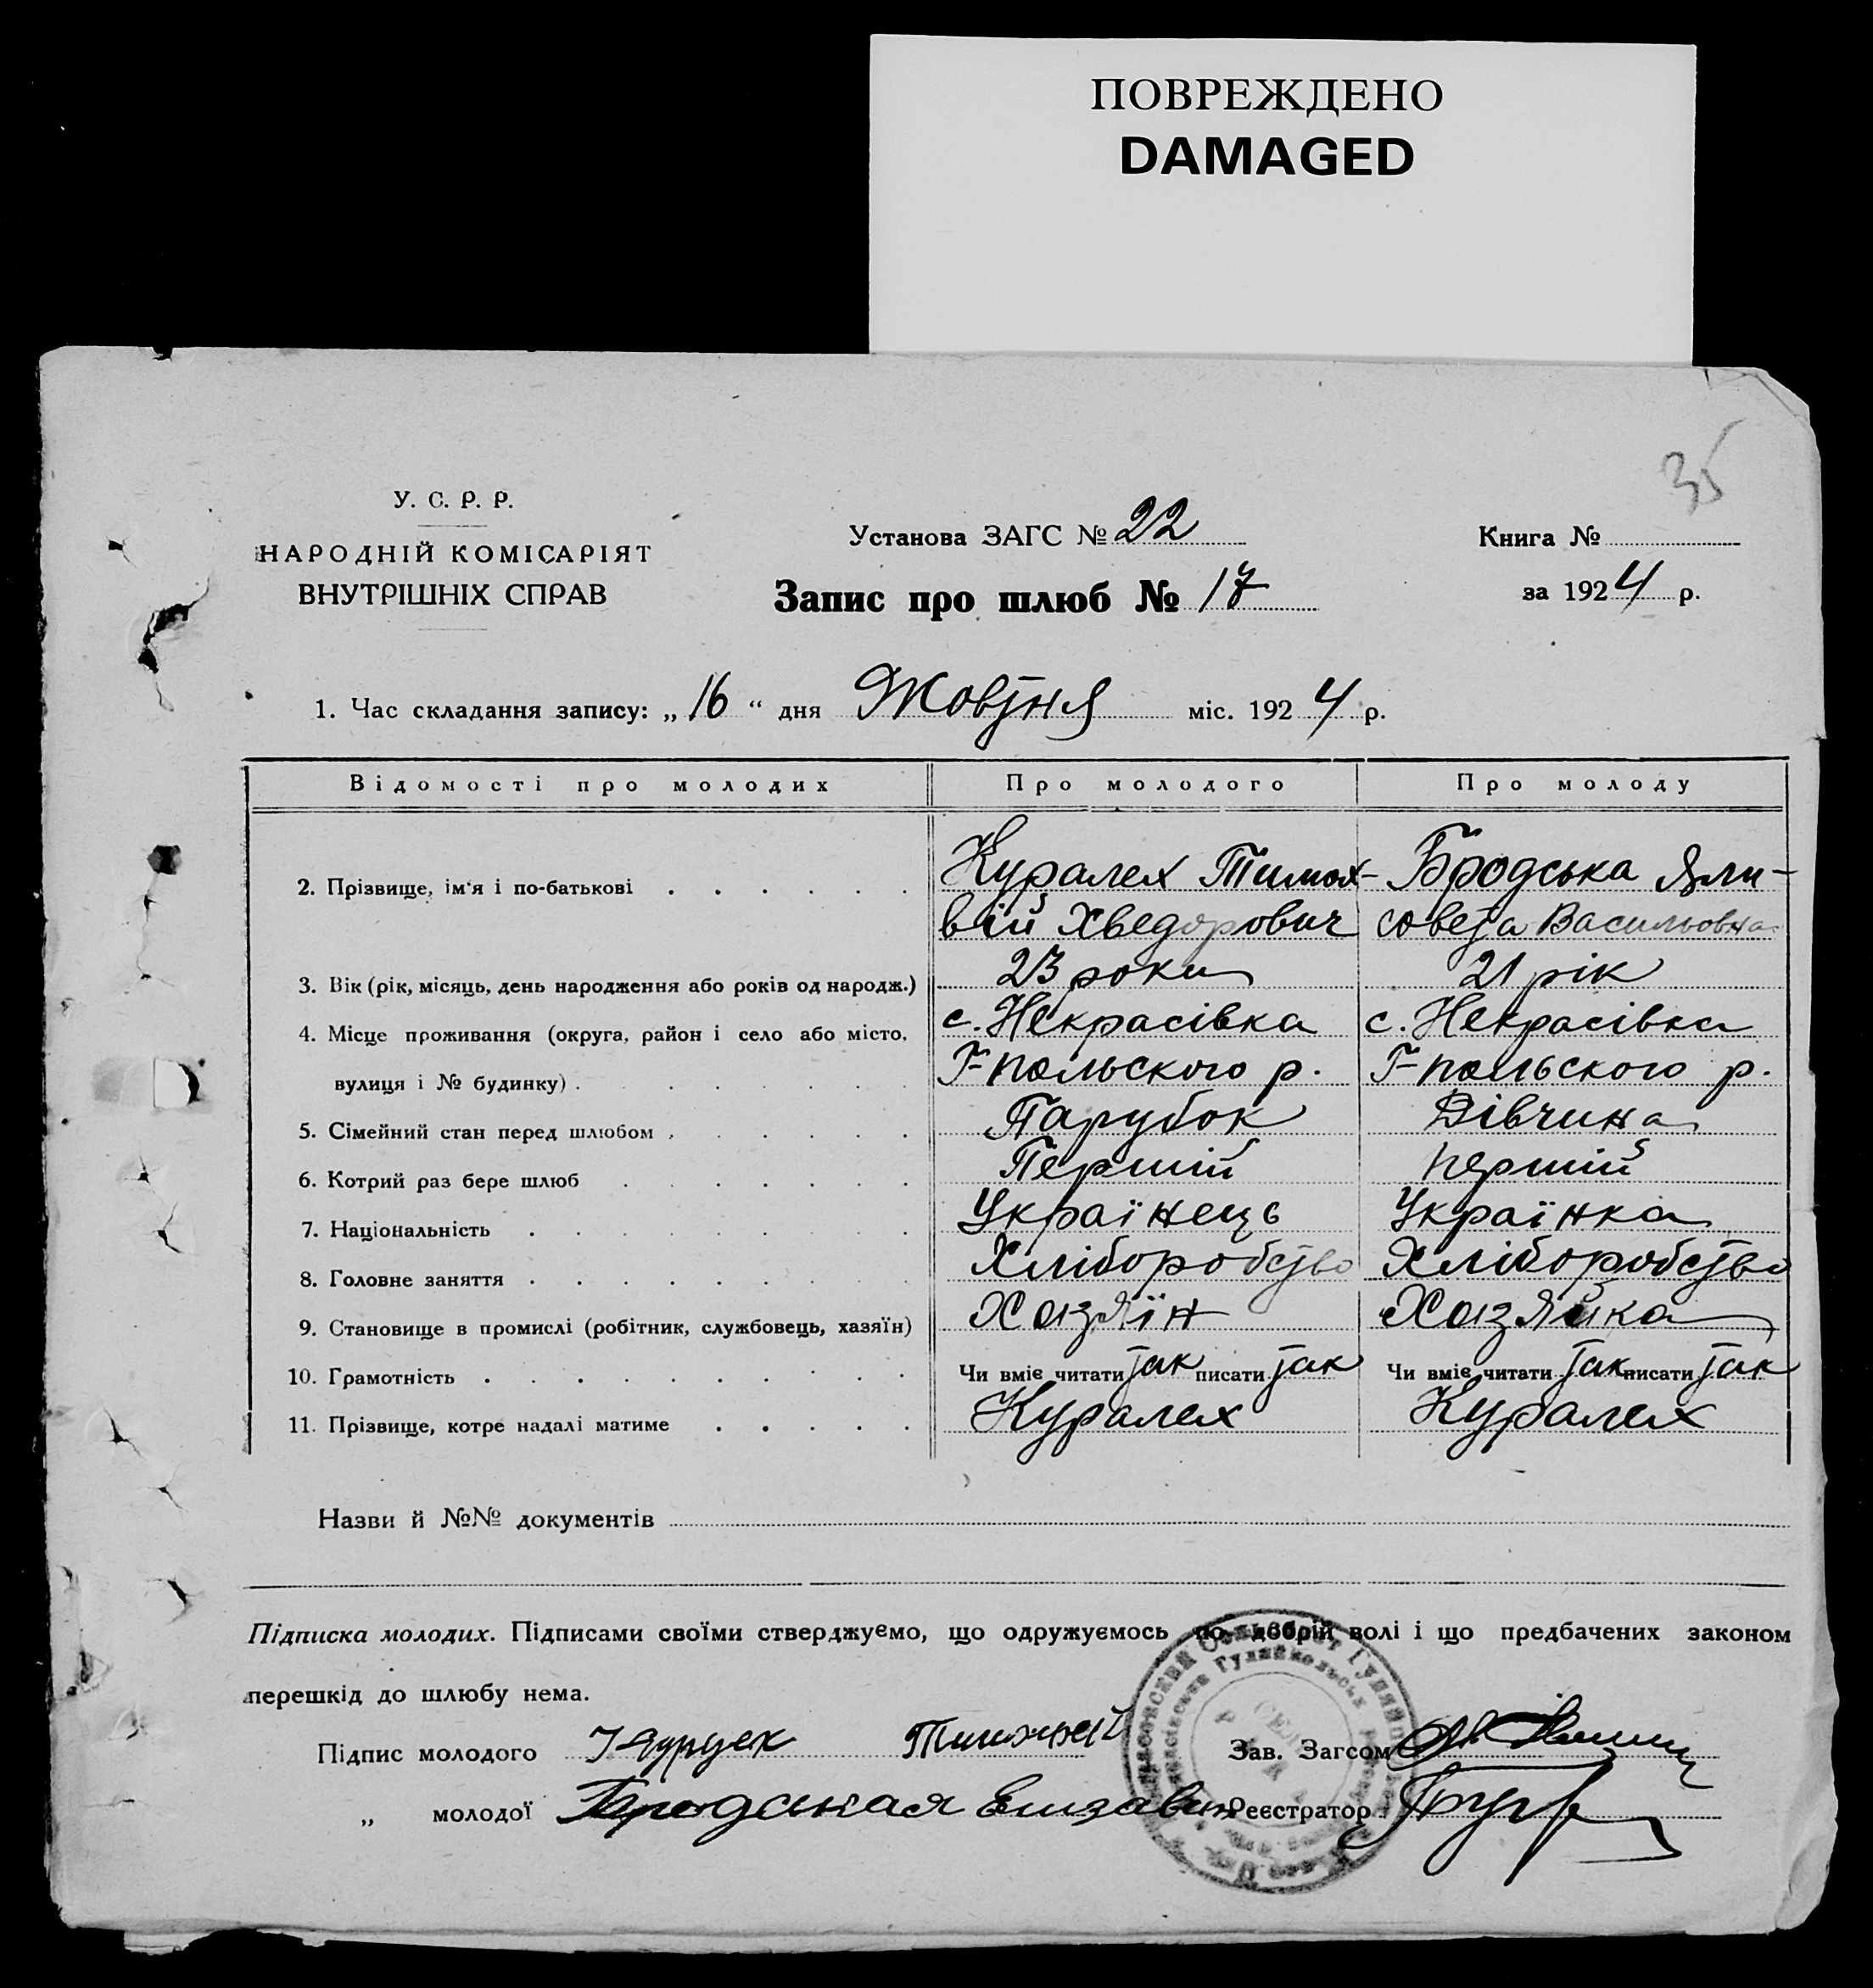 ПОВРЕЖДЕНО
DAMAGED
35
У. С. Р. Р.
НАРОДНІЙ КОМІСАРІЯТ
ВНУТРІШНІХ СПРАВ
Установа ЗАГС № 22
Запис про шлюб № 17
Книга №
за 1924 р.
1. Час складання запису: „16“ дня Жовтня міс. 1924 р.
Відомості про молодих Про молодого Про молоду
2. Прізвище, ім'я і по-батькові Куралех Тимох- Бродська Яли-
вій Хведорович совета Васильовна
3. Вік (рік, місяць, день народження або років од народж.) 23 роки 21 рік
4. Місце проживання (округа, район і село або місто, с. Некрасівка с. Некрасівка
вулиця і № будинку) Г-польського р. Г-польського р.
5. Сімейний стан перед шлюбом Парубок Дівчина
6. Котрий раз бере шлюб Перший перший
7. Національність Українець Українка
8. Головне заняття Хліборобство Хліборобство
9. Становище в промислі (робітник, службовець, хазяїн) Хазяїн Хазяйка
10. Грамотність Чи вміє читати так писати так Чи вміє читати так писати так
11. Прізвище, котре надалі матиме Куралех Куралех
Назви й №№ документів
Підписка молодих. Підписами своїми стверджуємо, що одружуємось по добрій волі і що предбачених законом
перешкід до шлюбу нема.
Підпис молодого Зав. Загсом
„ молодої Бродская Елизавит Реєстратор